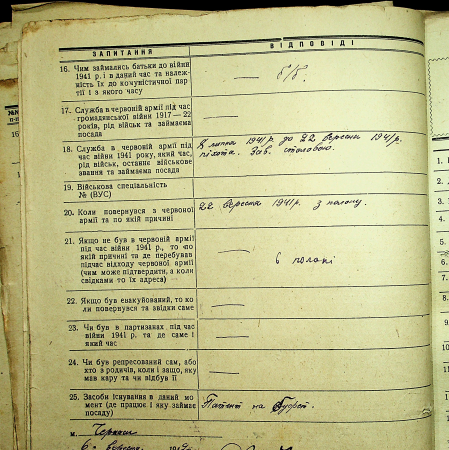 ЗАПИТАННЯ
ВІДПОВІДІ
16. Чим займались батьки до війни
1941 р. і в даний час та належ-
ність їх до комуністичної пар-
тії і з якого часу
— б/п.
17. Служба в червоній армії під час
громадянської війни 1917—22
років, рід військ та займаєма
посада
—
18. Служба в червоній армії під
час війни 1941 року, який час,
рід військ, останнє військове
звання та займаєма посада
З липня 1941 р. до 22 вересня 1941 р.
піхота. Зав. столовою.
19. Військова спеціальність
№ (ВУС)
—
20. Коли повернувся з червоної
армії та по якій причині
22 вересня 1941 р. з полону.
21. Якщо не був в червоній армії
під час війни 1941 р., то по
якій причині та де перебував
підчас відходу червоної армії
(чим може підтвердити, а коли
свідками то їх адреса)
в полоні
22. Якщо був евакуйований, то ко-
ли повернувся та звідки саме
—
23. Чи був в партизанах під час
війни 1941 р. та де саме і
який час
—
24. Чи був репресований сам, або
хто з родичів, коли і защо, яку
мав кару та чи відбув її
—
25. Засоби існування в даний мо-
мент (де працює і яку займає
посаду)
Патент на буфет.
м. Черкаси
6 вересня